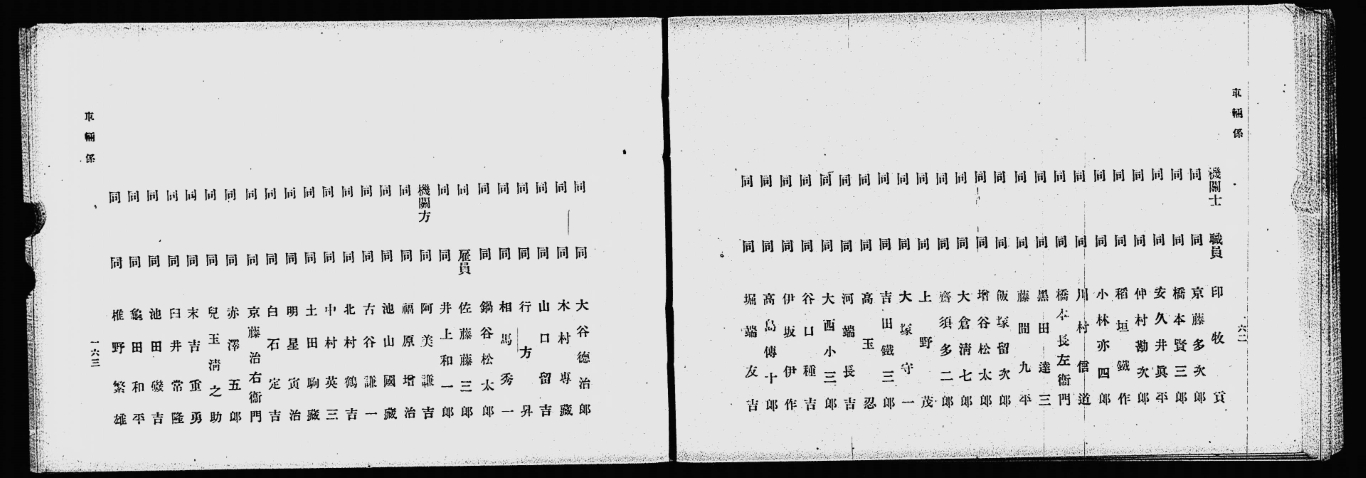 車輛係
機關士 職員 印牧貢
同 同 京藤多次郎
同 同 橋本賢三郎
同 同 安久井眞平
同 同 仲村勘次郎
同 同 稻垣鐵作
同 同 小林亦四郎
同 同 川村信道
同 同 橋本長左衞門
同 同 黑田達三
同 同 藤間九平
同 同 飯塚留次郎
同 同 增谷松太郎
同 同 大倉淸七郎
同 同 齋須多二郎
同 同 上野茂
同 同 大塚守一
同 同 吉田鐵三郎
同 同 高玉忍
同 同 河端長吉
同 同 大西小三郎
同 同 谷口種吉
同 同 伊坂伊作
同 同 高島傳十郎
同 同 堀端友吉
同 同 大谷德治郎
同 同 木村專藏
同 同 山口留吉
同 同 行方昇
同 同 相馬秀一
同 同 鍋谷松太郎
同 雇員 佐藤藤三郎
同 同 井上和一郎
機關方 同 阿美謙吉
同 同 福原增治
同 同 池山國藏
同 同 古谷謙一
同 同 北村鶴吉
同 同 中村英三
同 同 土田駒藏
同 同 明星寅治
同 同 白石定吉
同 同 京藤治右衞門
同 同 赤澤五郎
同 同 兒玉淸之助
同 同 末吉重勇
同 同 臼井常隆
同 同 池田發吉
同 同 龜田和平
同 同 椎野繁雄
車輛係
一六三